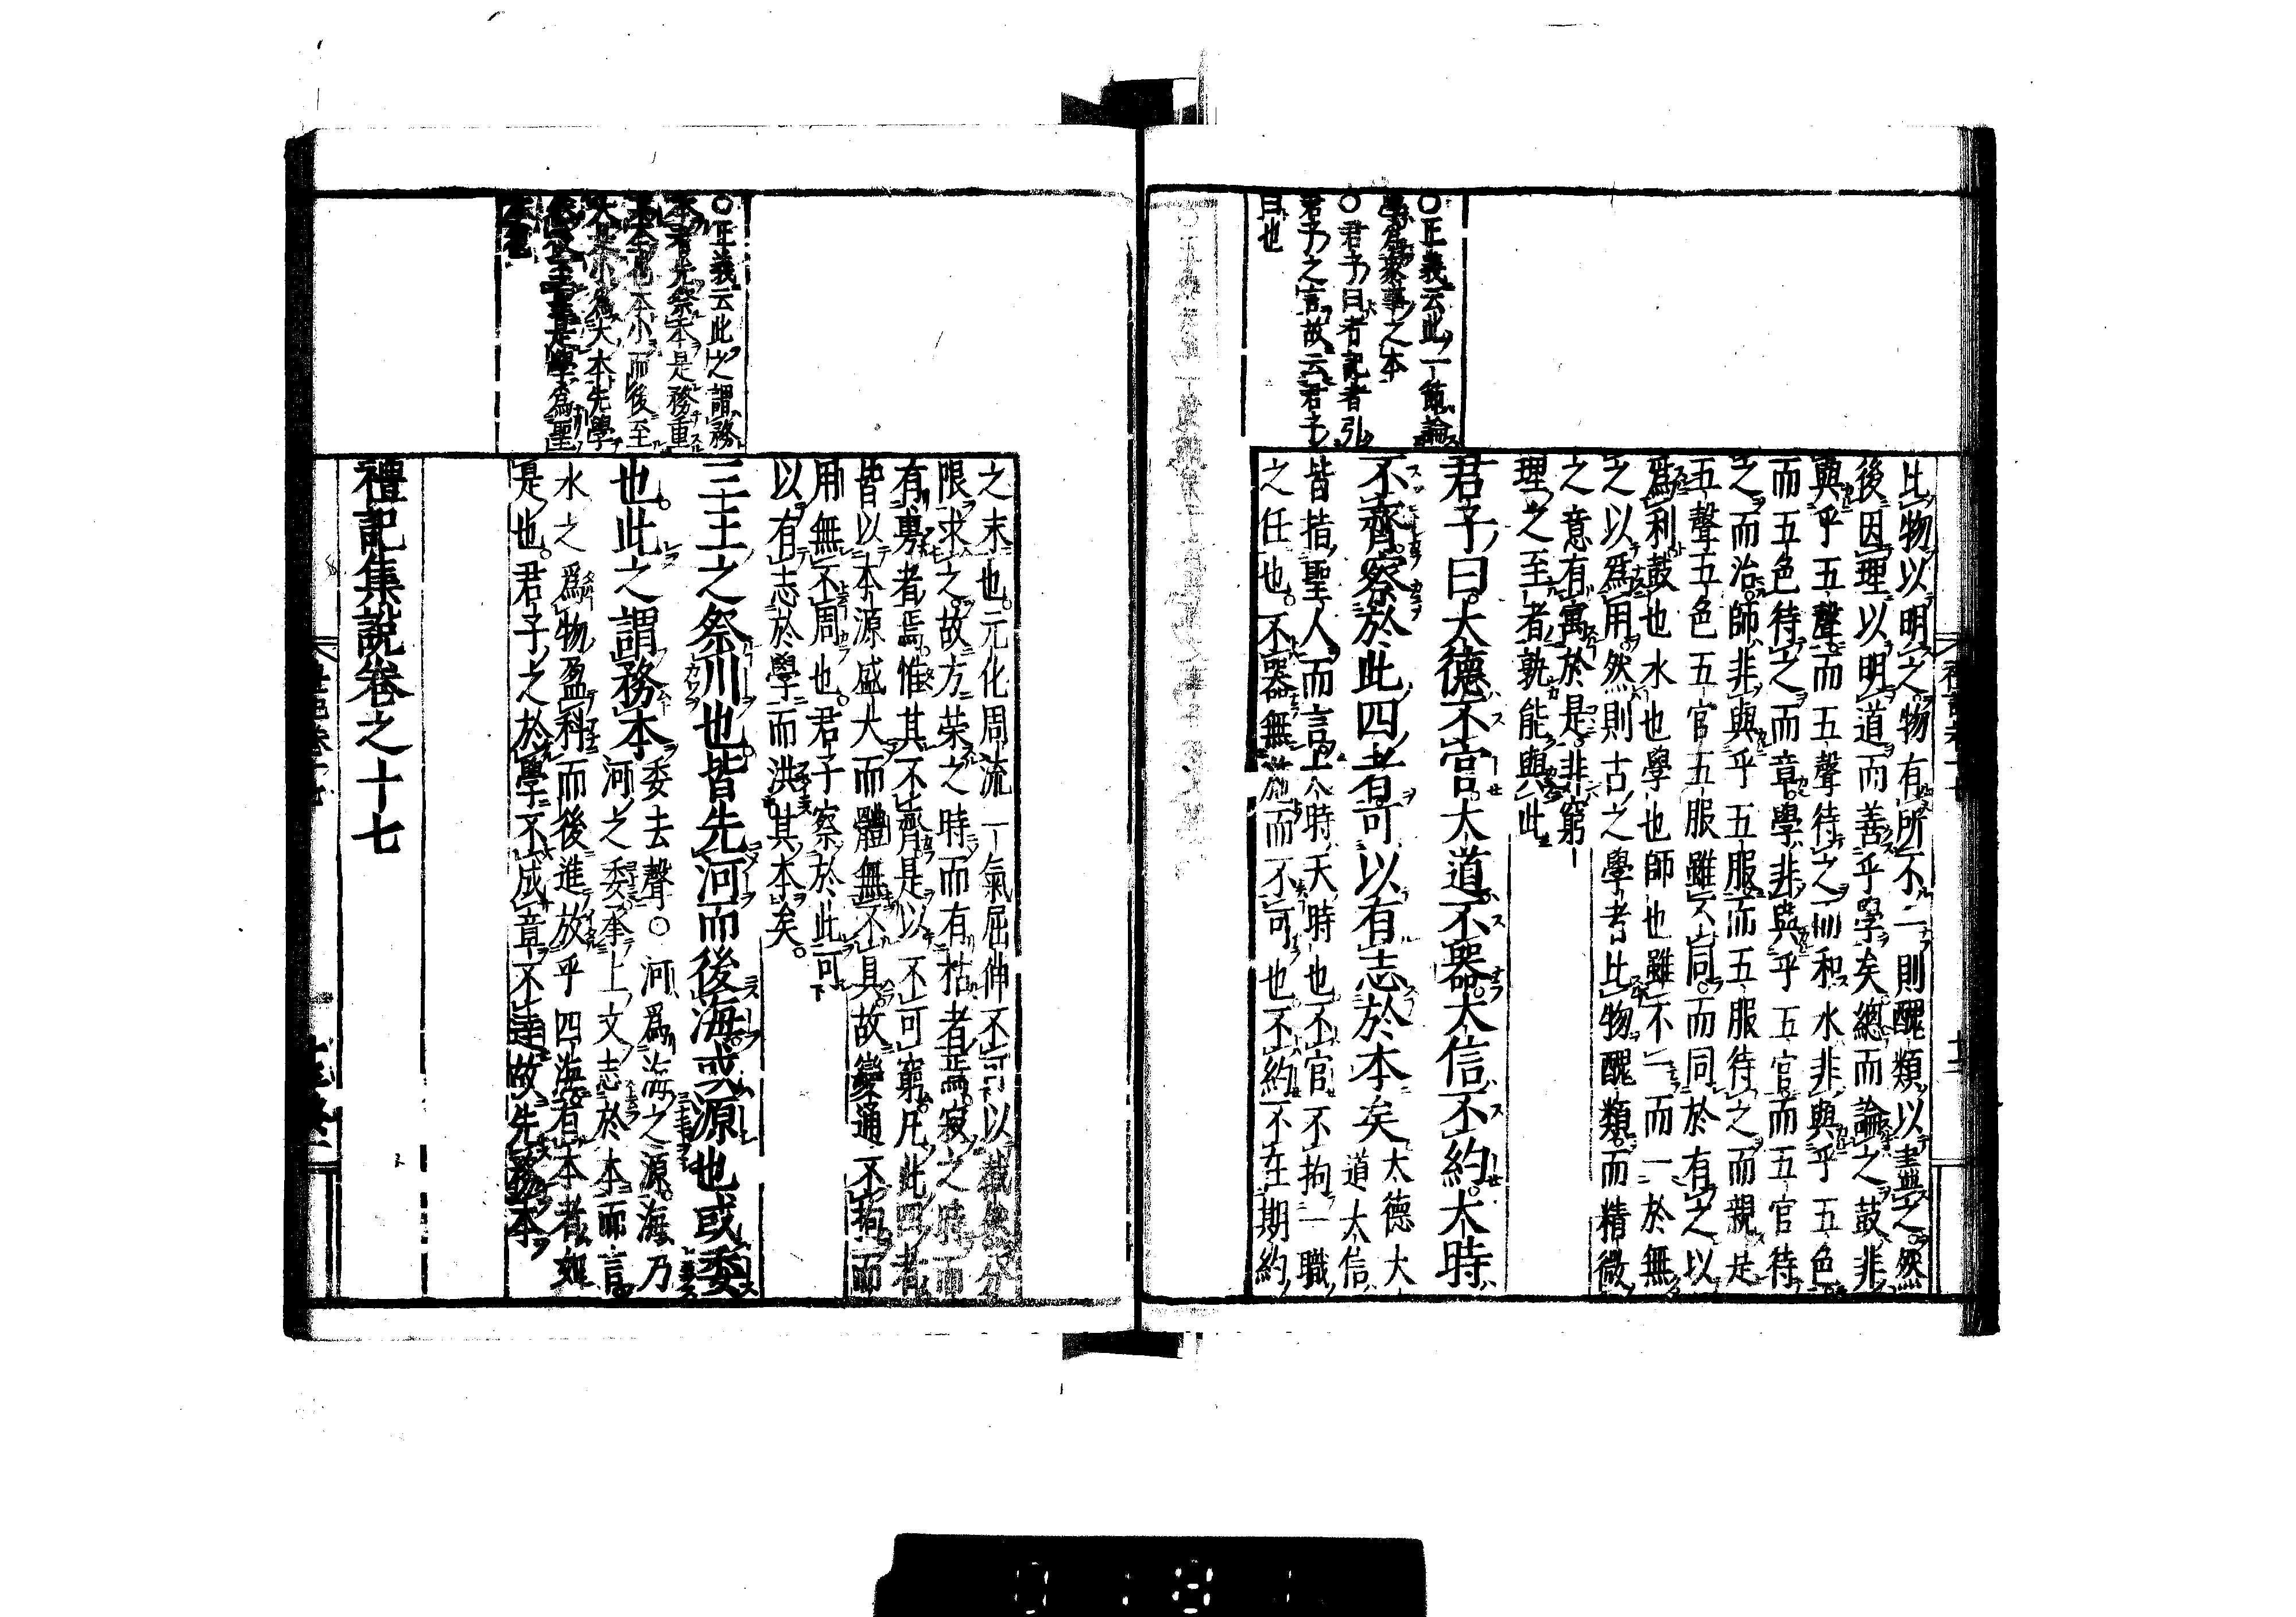 比物以明之物有所不二則醜類以盡之然
後因理以明道而善乎學矣總而論之鼓非
與乎五聲而五聲待之而和水非與乎五色
而五色待之而章學非與乎五官而五官待
之而治師非與乎五服而五服待之而親是
五聲五色五官五服雖不同而同於有之以
爲利鼓也水也學也師也雖不一而一於無
之以爲用然則古之學者比物醜類而精微
之意有寓於是非窮
理之至者孰能與此
○正義云此一節論
學爲衆事之本
○君子曰者記者引
君子之言故云君子
曰也
君子曰大德不官大道不器大信不約大時
不齊察於此四者可以有志於本矣大德大
道大信
皆指聖人而言大時天時也不官不拘一職
之任也不器無施而不可也不約不在期約
之末也元化周流一氣屈伸不可以截然分
限求之故方榮之時而有枯者焉寂之時而
有旉者焉惟其不齊是以不可窮凡此四者
皆以本源盛大而體無不具故變通不拘而
用無不周也君子察於此可
以有志於學而洪其本矣
三王之祭川也皆先河而後海或源也或委
也此之謂務本委去聲○河爲海之源海乃
河之委承上文志於本而言
水之爲物盈科而後進放乎四海有本者如
是也君子之於學不成章不達故先務本
○正義云此之謂務
本者先祭本是務重
本也本小而後至
大是小爲大本先學
然後至聖是學爲聖
本也
禮記集說卷之十七